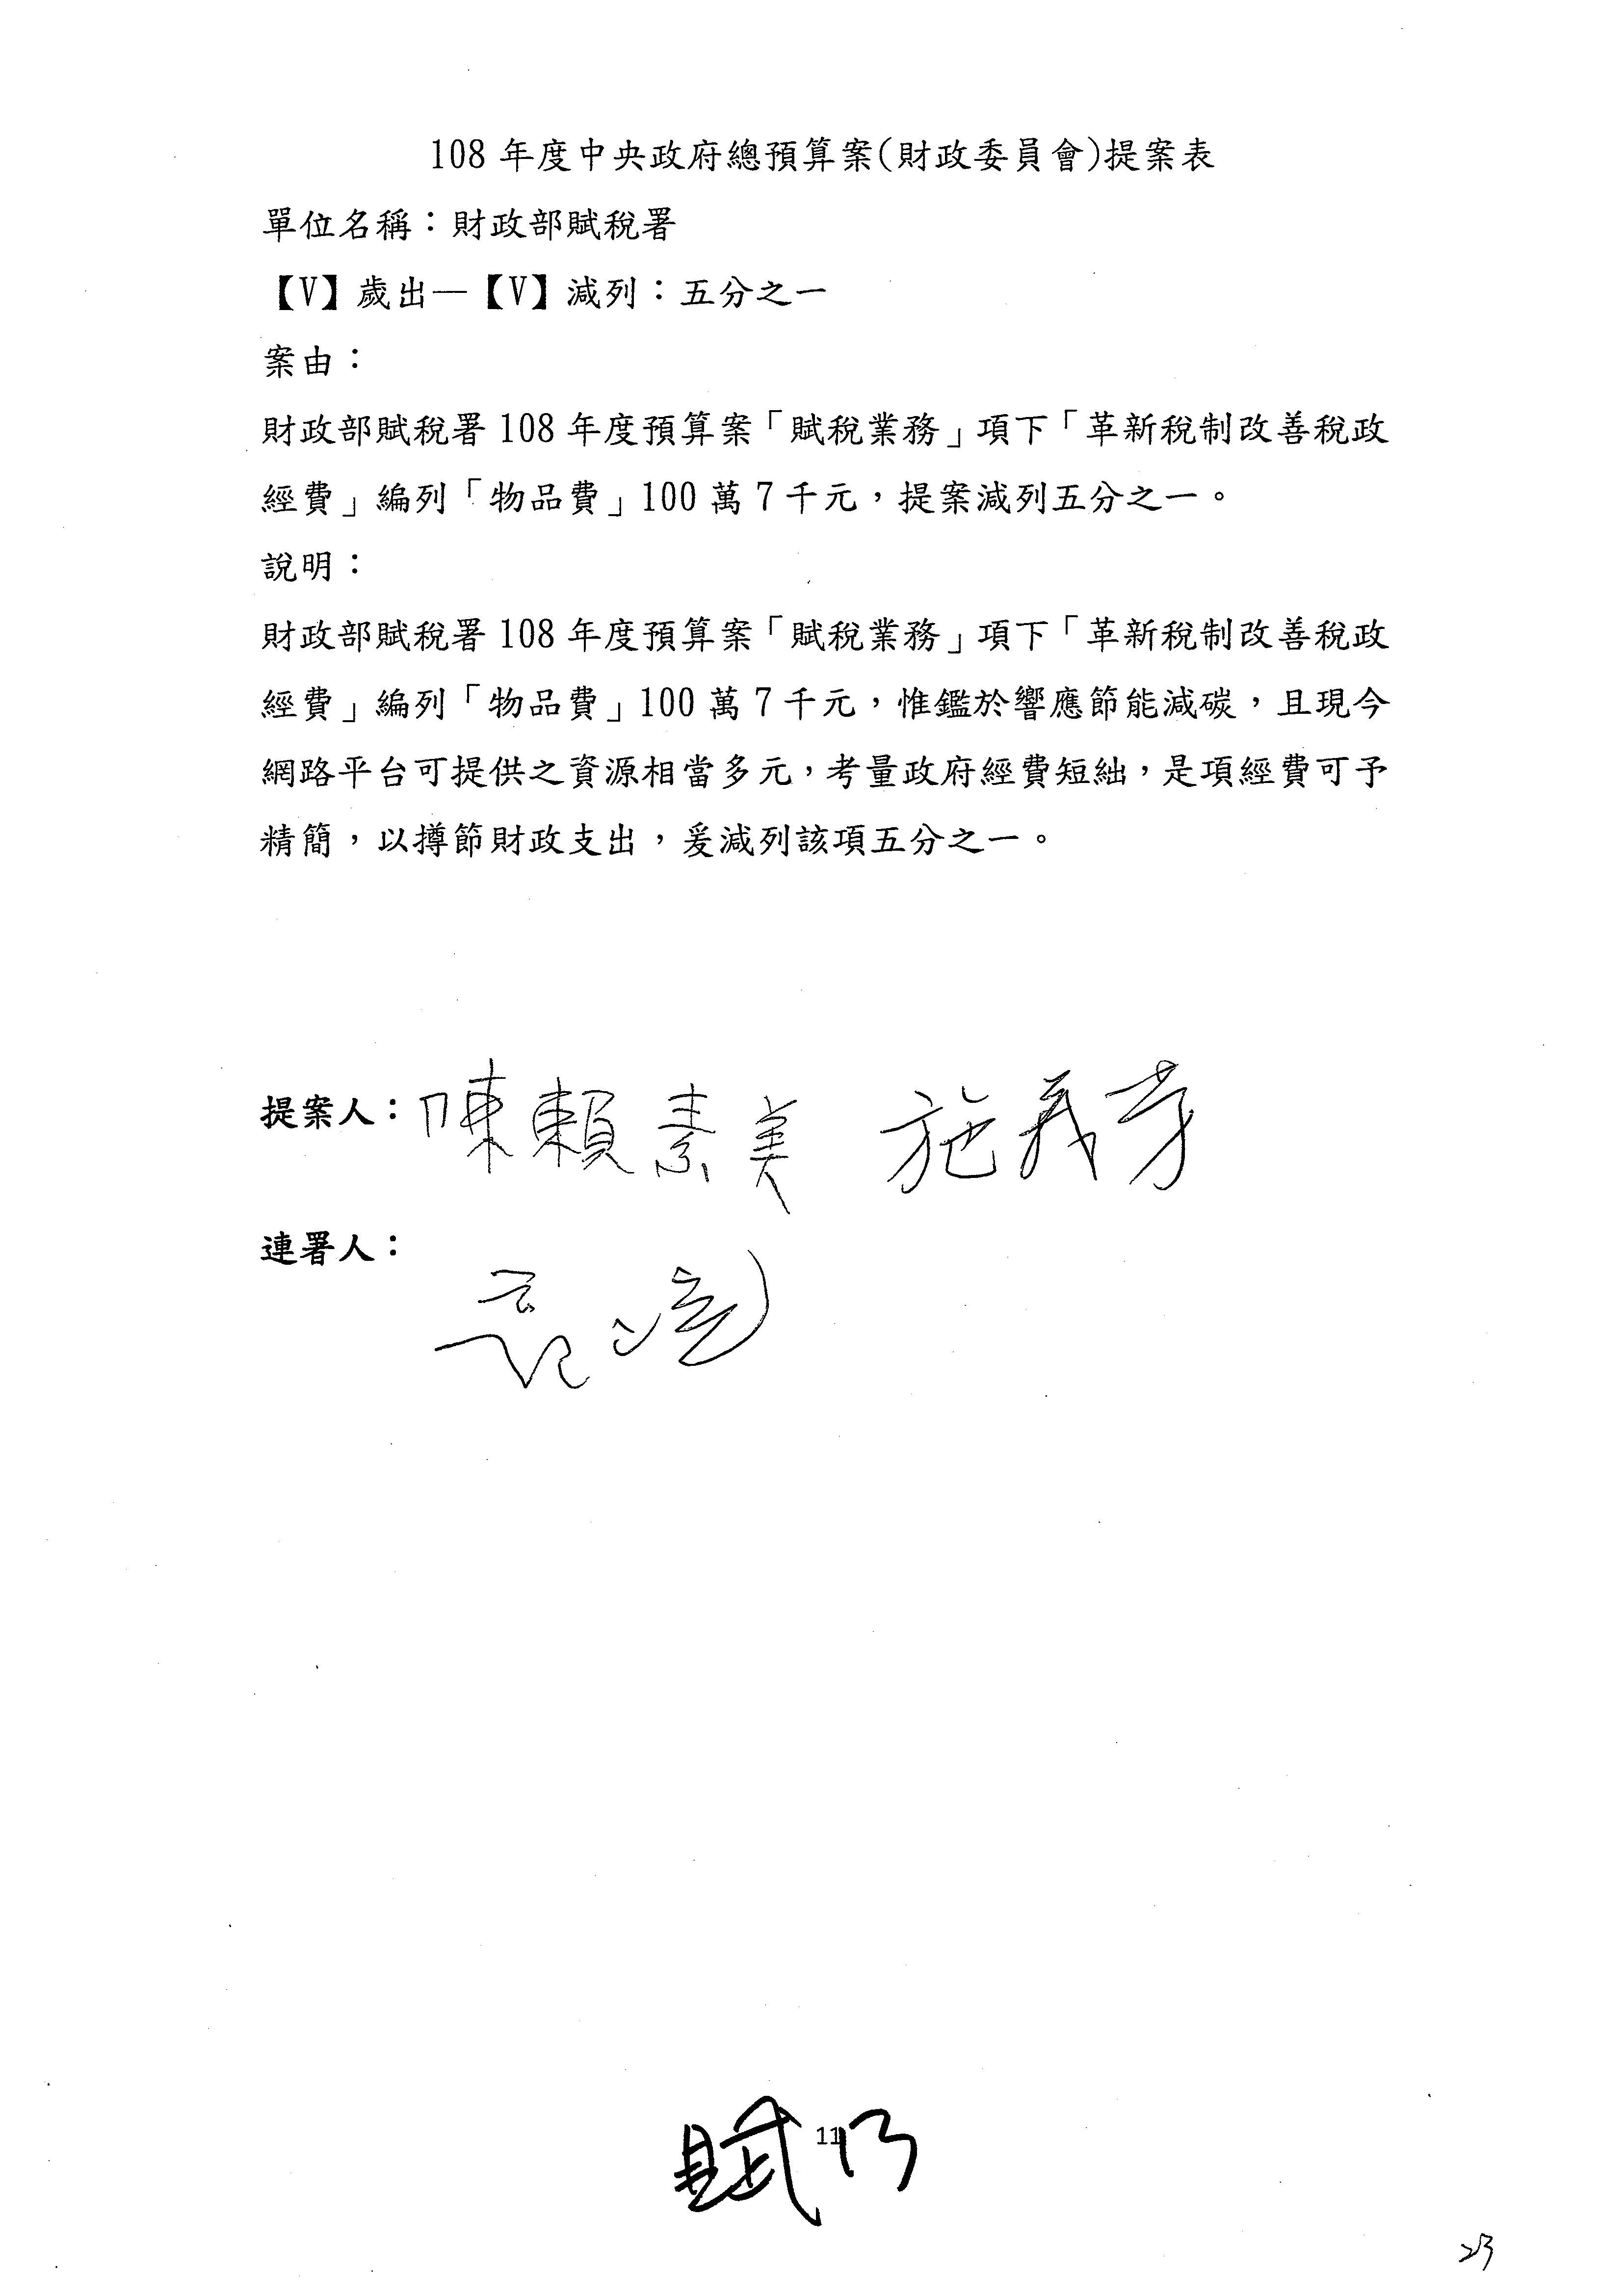 108 年度中央政府總預算案(財政委員會)提案表
單位名稱：財政部賦稅署
【V】歲出—【V】減列：五分之一
案由：
財政部賦稅署 108 年度預算案「賦稅業務」項下「革新稅制改善稅政
經費」編列「物品費」100 萬 7 千元，提案減列五分之一。
說明：
財政部賦稅署 108 年度預算案「賦稅業務」項下「革新稅制改善稅政
經費」編列「物品費」100 萬 7 千元，惟鑑於響應節能減碳，且現今
網路平台可提供之資源相當多元，考量政府經費短絀，是項經費可予
精簡，以撙節財政支出，爰減列該項五分之一。
提案人：陳賴素美 施義芳
連署人：
賦 11 13
23